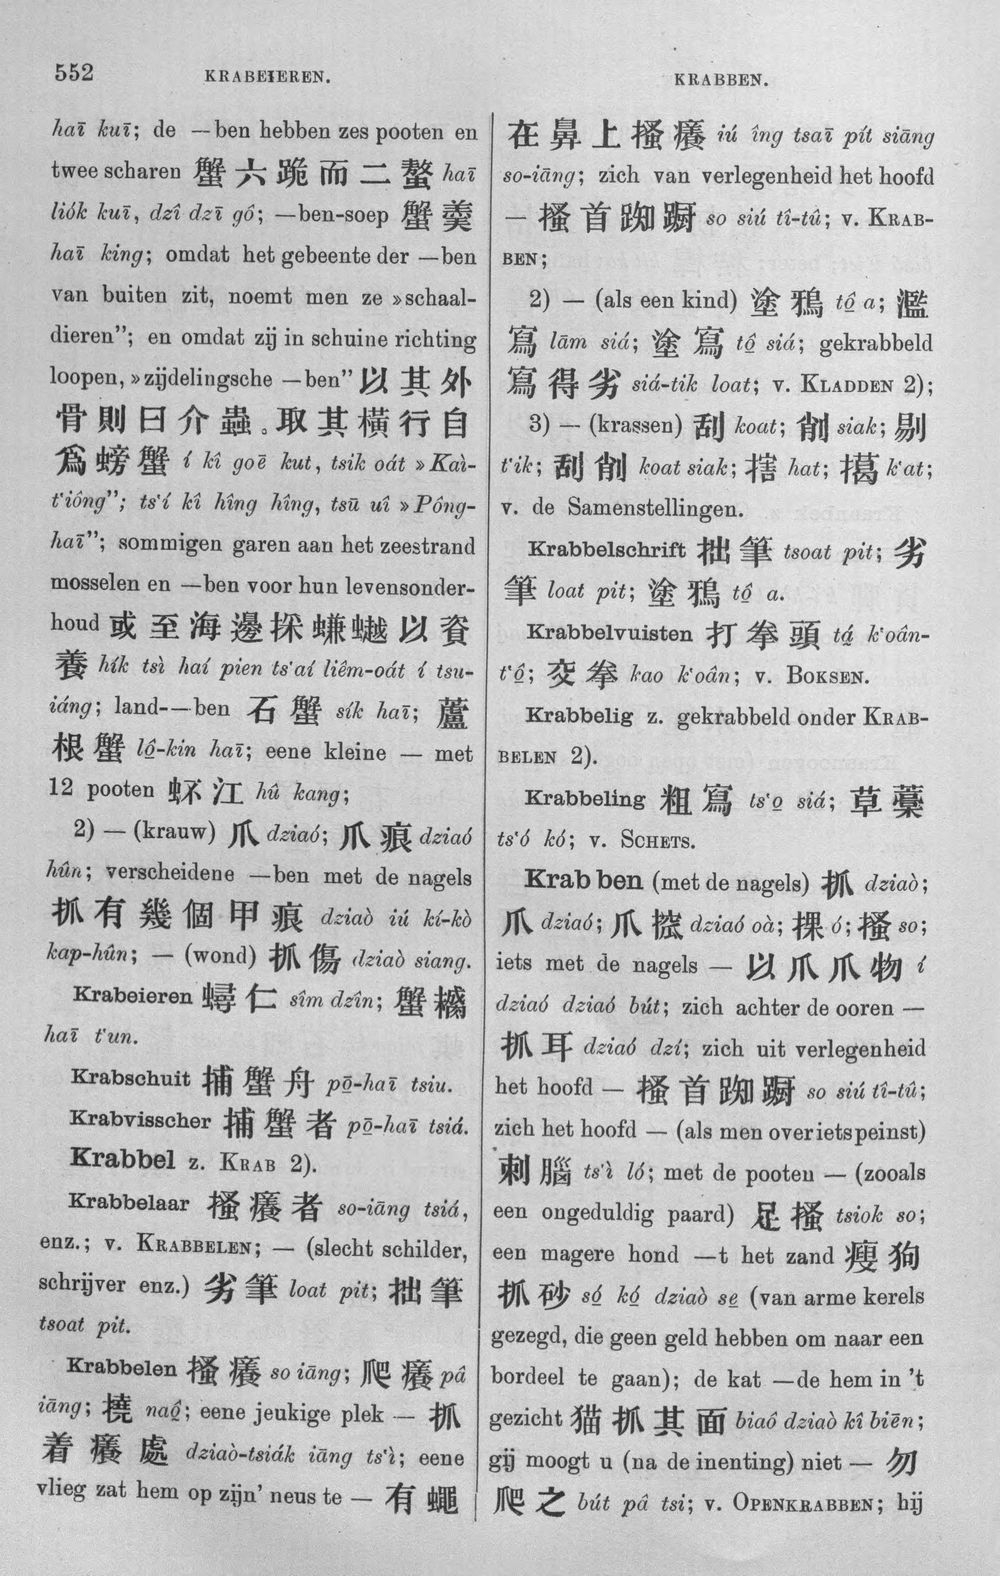 552
KRABEIEREN.
KRABBEN.
haī kuī; de —ben hebben zes pooten en
twee scharen 蟹六跪而二螯 haī
liók kuī, dzî dzī gô; —ben-soep 蟹羹
haī king; omdat het gebeente der —ben
van buiten zit, noemt men ze »schaal-
dieren"; en omdat zij in schuine richting
loopen, »zijdelingsche —ben" 以其外
骨則曰介蟲。取其橫行自
爲螃蟹 í kî goē kut, tsik oát »Kaì-
t'iông"; ts'í kî hîng hîng, tsū uî »Pông-
haī"; sommigen garen aan het zeestrand
mosselen en —ben voor hun levensonder-
houd 或至海邊採蠊𧑅以資
養 hík tsì haí pien ts'aí liêm-oát í tsu-
iáng; land-—ben 石蟹 sík haī; 蘆
根蟹 lô-kin haī; eene kleine — met
12 pooten 虾江 hû kang;
2) — (krauw) 爪 dziaó; 爪痕 dziaó
hûn; verscheidene —ben met de nagels
抓有幾個甲痕 dziaò iú kí-kò
kap-hûn; — (wond) 抓傷 dziaò siang.
Krabeieren 蟳仁 sîm dzîn; 蟹
haī t'un.
Krabschuit 捕蟹舟 pō-haī tsiu.
Krabvisscher 捕蟹者 pō-haī tsiá.
Krabbel z. KRAB 2).
Krabbelaar 搔癢者 so-iāng tsiá,
enz.; v. KRABBELEN; — (slecht schilder,
schrijver enz.) 劣筆 loat pit; 拙筆
tsoat pit.
Krabbelen 搔癢 so iāng; 爬癢 pâ
iāng; 撓 naô; eene jeukige plek — 抓
着癢處 dziaò-tsiák iāng ts'ì; eene
vlieg zat hem op zijn' neus te — 有蠅
在鼻上搔癢 iú îng tsaī pít siāng
so-iāng; zich van verlegenheid het hoofd
— 搔首踟躕 so siú tî-tû; v. KRAB-
BEN;
2) — (als een kind) 塗鴉 tô a; 濫
寫 lām siá; 塗寫 tô siá; gekrabbeld
寫得劣 siá-tik loat; v. KLADDEN 2);
3) — (krassen) 刮 koat; 削 siak; 剔
t'ik; 刮削 koat siak; 搳 hat; 擖 k'at;
v. de Samenstellingen.
Krabbelschrift 拙筆 tsoat pit; 劣
筆 loat pit; 塗鴉 tô a.
Krabbelvuisten 打拳頭 tá k'oân-
t'ô; 交拳 kao k'oân; v. BOKSEN.
Krabbelig z. gekrabbeld onder KRAB-
BELEN 2).
Krabbeling 粗寫 ts'o siá; 草藁
ts'ó kó; v. SCHETS.
Krabben (met de nagels) 抓 dziaò;
爪 dziaó; 爪挖 dziaó oà; 擓 ó; 搔 so;
iets met de nagels — 以爪爪物 í
dziaó dziaó bút; zich achter de ooren —
抓耳 dziaó dzí; zich uit verlegenheid
het hoofd — 搔首踟躕 so siú tî-tû;
zich het hoofd — (als men over iets peinst)
刺腦 ts'ì ló; met de pooten — (zooals
een ongeduldig paard) 足搔 tsiok so;
een magere hond —t het zand 瘦狗
抓砂 só kó dziaò se (van arme kerels
gezegd, die geen geld hebben om naar een
bordeel te gaan); de kat —de hem in 't
gezicht 猫抓其面 biaô dziaò kî biēn;
gij moogt u (na de inenting) niet — 勿
爬之 bút pâ tsi; v. OPENKRABBEN; hij